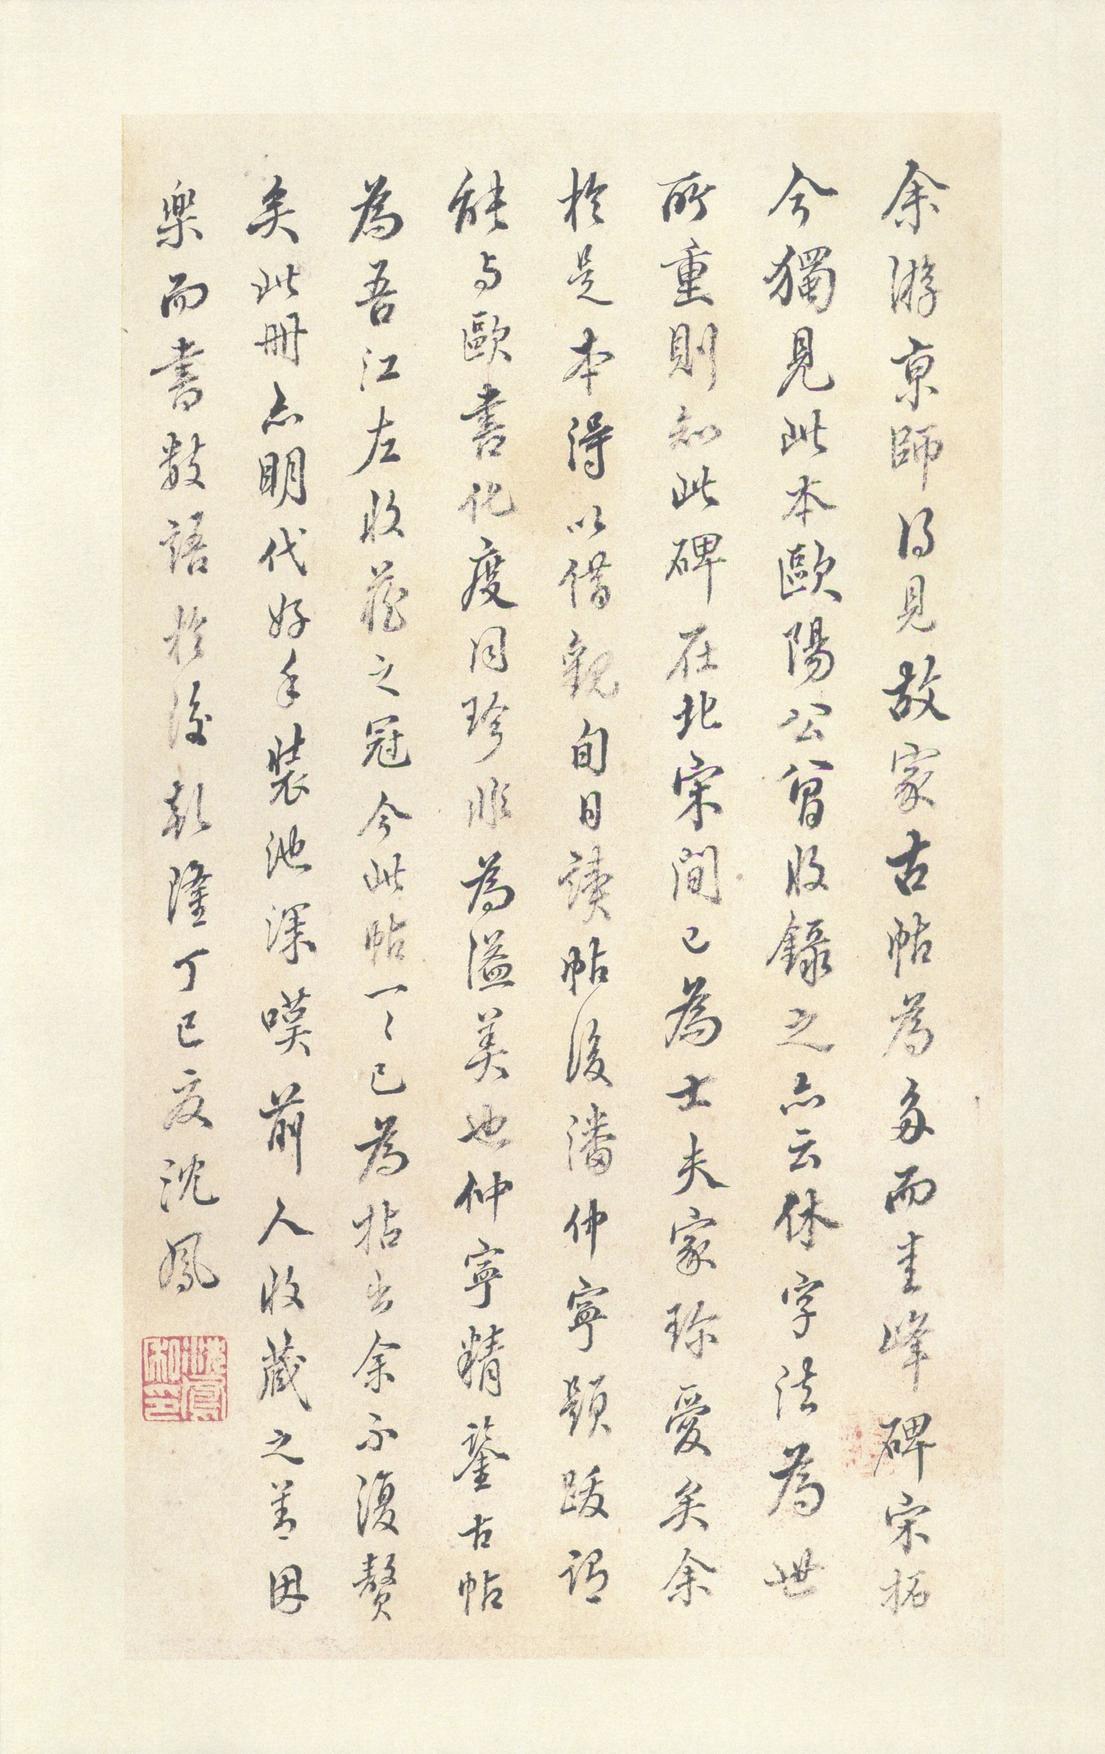 余游京師得見故家古帖為多而圭峰碑宋拓
今獨見此本歐陽公曾收錄之亦云休字法為世
所重則知此碑在北宋間已為士夫家珍愛矣余
於是本得以借觀旬日讀帖後潘仲寧題跋謂
能与歐書化度同珍非為溢美也仲寧精鑒古帖
為吾江左收藏之冠今此帖一々已為拈出余不復贅
矣此冊亦明代好手裝池深嘆前人收藏之善因
樂而書數語於後乾隆丁巳夏沈鳳